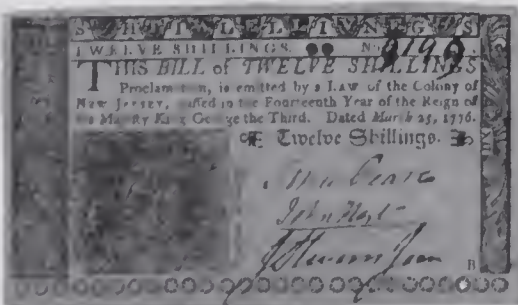 TWELVE SHILLINGS. No
THIS BILL of TWELVE SHILLINGS
Proclamation, is emitted by a LAW of the Colony of
New Jersey, passed in the Fourteenth Year of the Reign of
his Majesty King George the Third. Dated March 25, 1776.
Twelve Shillings.
John Hart
B